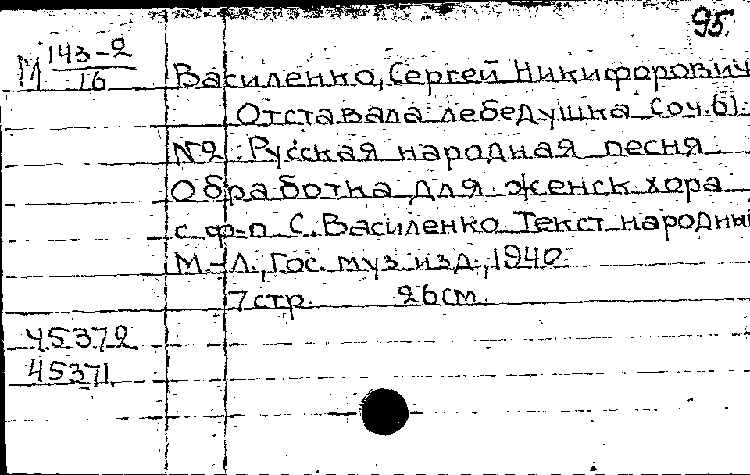 95.
М 143-2
16
Василенко, Сергей Никифорович
Отставала лебедушка Соч. 61.
№2. Русская народная песня.
Обработка для женск. хора
с ф-п С. Василенко Текст народный
М.-Л., Гос. муз. изд., 1940.
7 стр. 26 см.
45372
45371